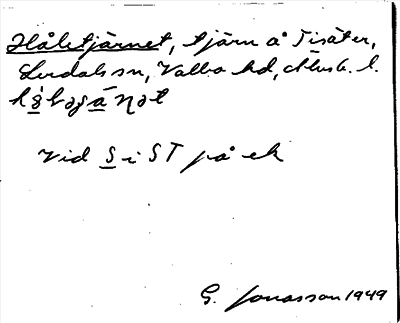 Håletjärnet, tjärn å Tisäter,
Lerdals sn, Valbo hd, Älvsb. l.
Vid S i ST på ek
G. Jonasson 1949